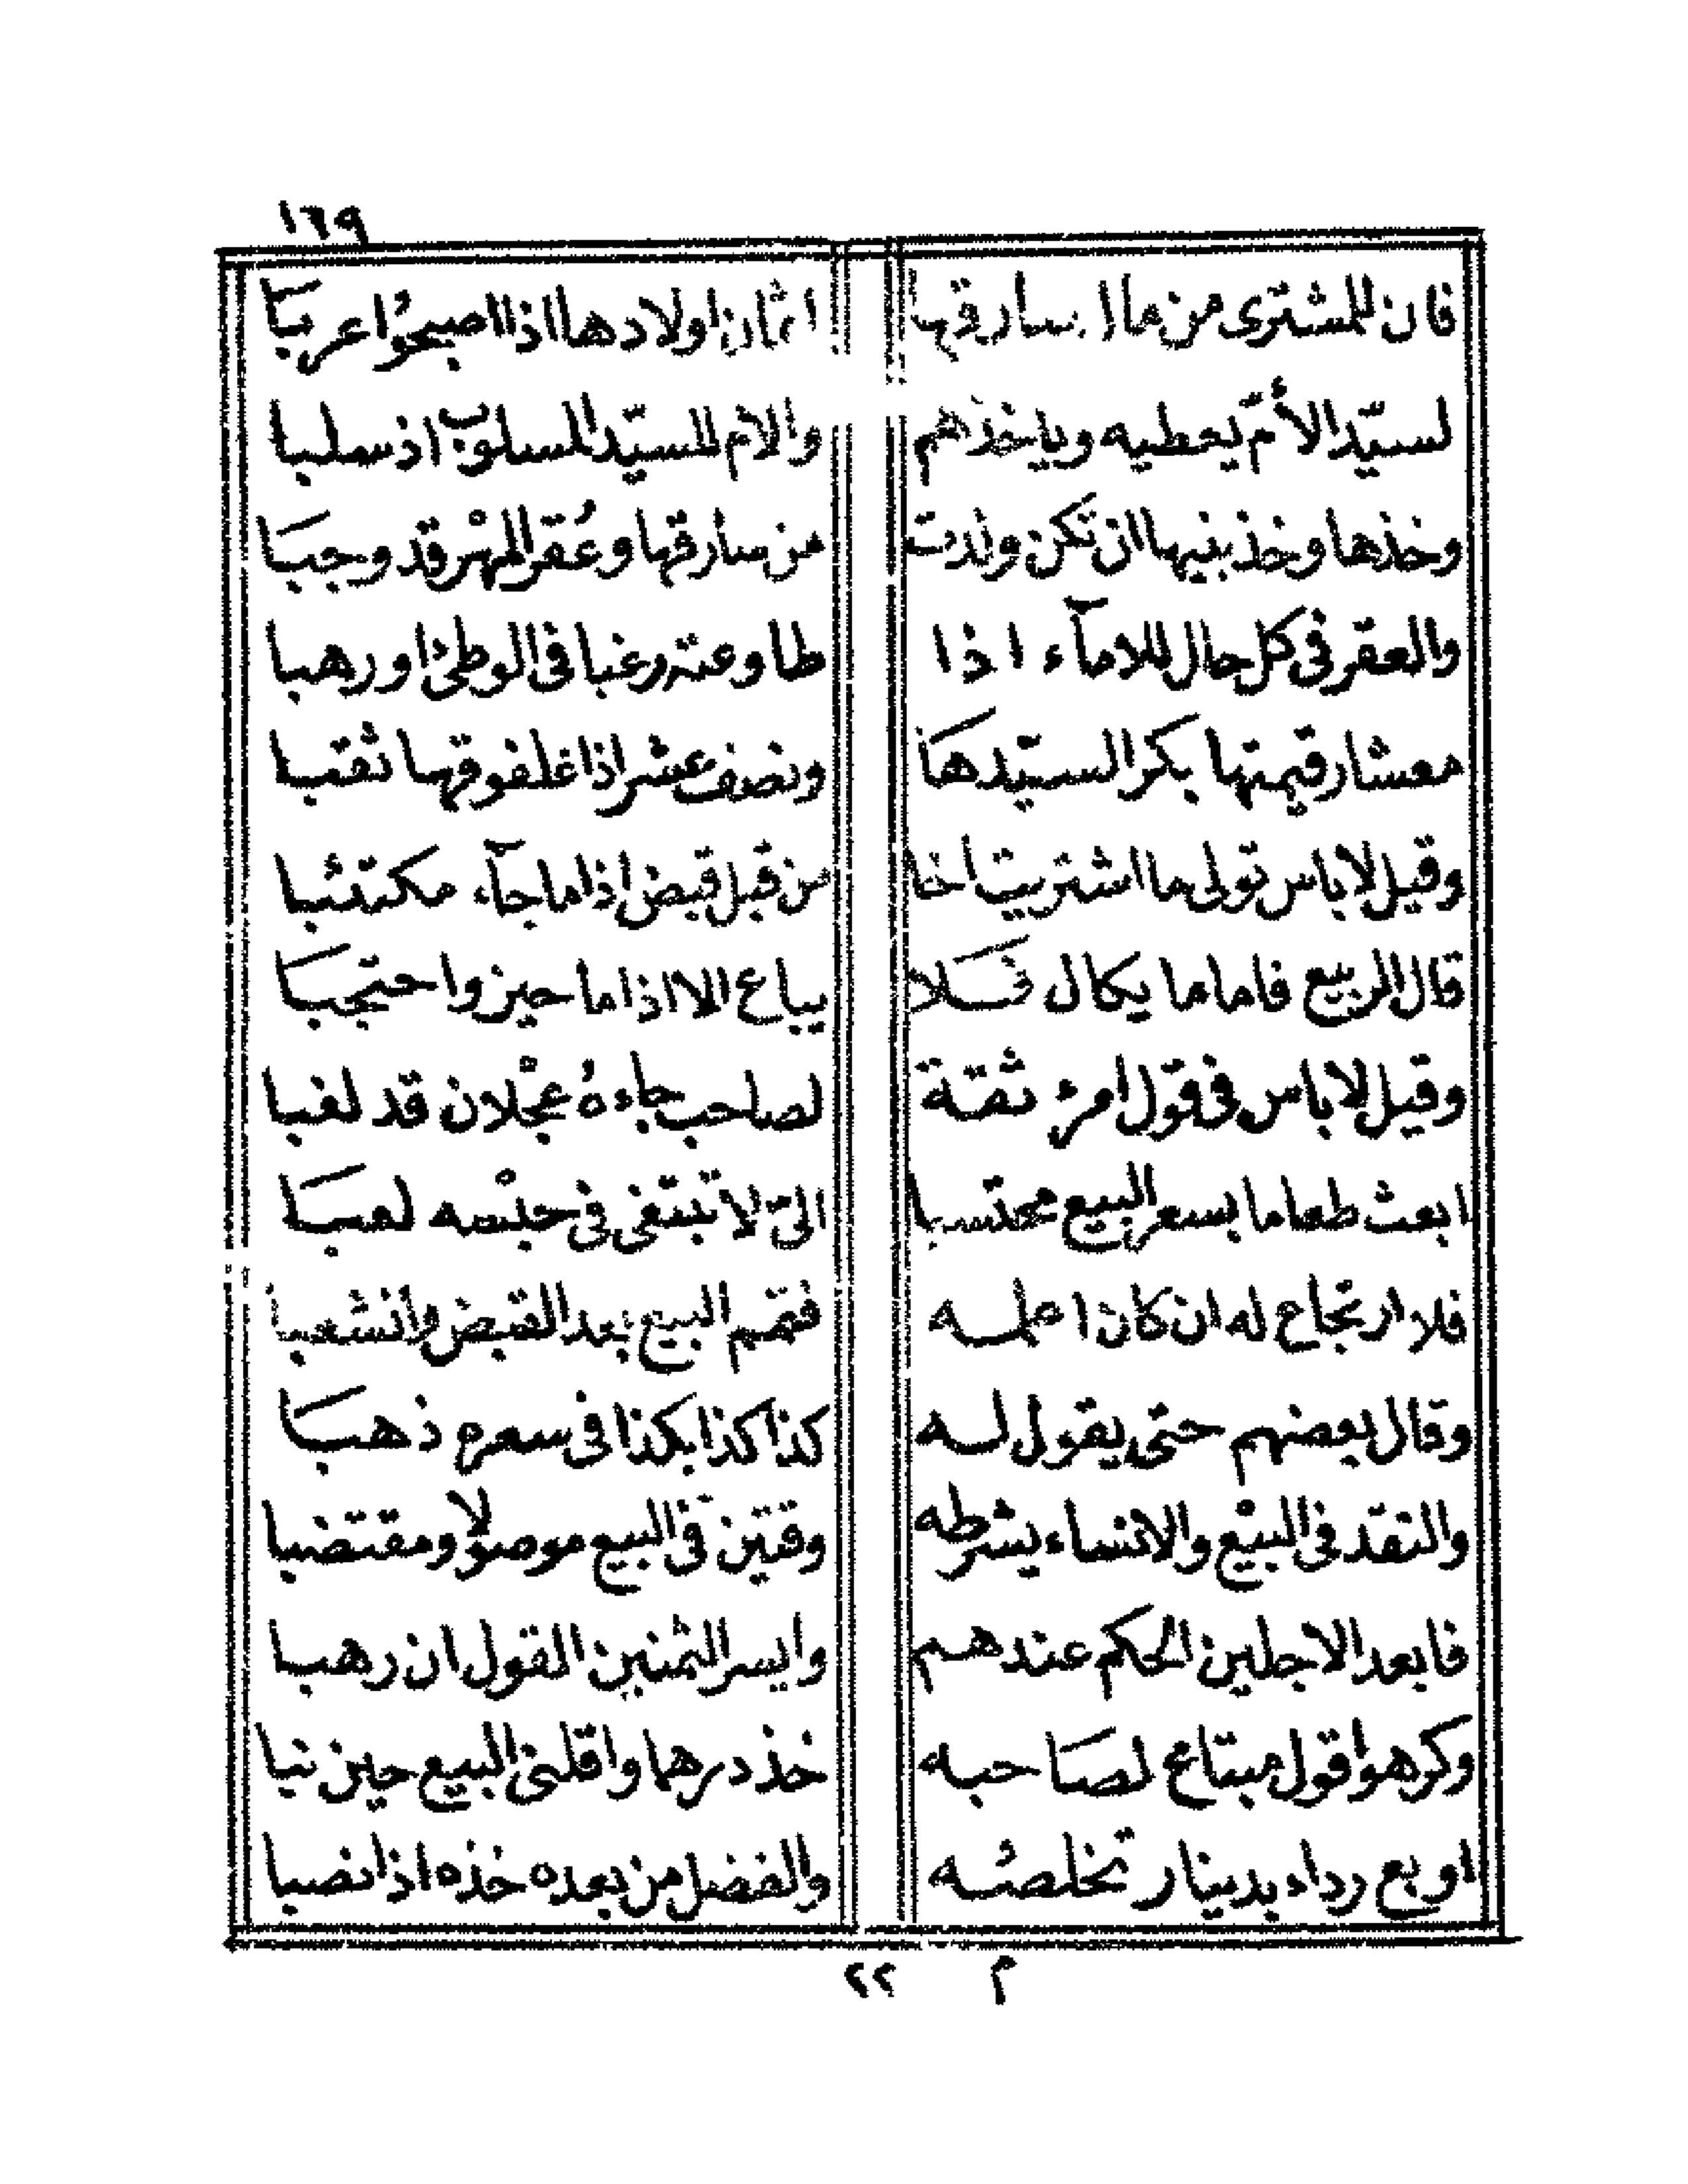 ١٦٩
فان للمشترى من مال سارقها اثمان اولادها اذا اصبحوا عربا
لسيّد الأمّ يعطيه وياخذهم والام للسيّد المسلوب اذ سلبا
وخذها وخذ بنيها ان تكن ولدت من سارقها وعُقر المهْر قد وجبا
والعقر فى كل حال للامآء اذا طاوعته رغبا فى الوطئ او رهبا
معشار قيمتها بكرا لسيّدها ونصف عشر اذا غلفوقها ثقبا
وقيل لا باس تولى ما اشتريت اخا من قبل قبض اذا ما جآء مكتئبا
قال الربيع فاما ما يكال فلا يباع الا اذا ما حيز واحتجبا
وقيل لا باس فى قول امرئ ثقة لصاحب جاءهُ عجْلان قد لغبا
ابعث طعاما بسعر البيع محتسبا الىّ لا تبتغى فى حبْسه لعبا
فلا ارتجاع له ان كان اعلمه فتمّم البيع بعد القبض وانشعبا
وقال بعضهم حتى يقول له كذا كذا بكذا فى سعره ذهبا
والنقد فى البيْع والانساء يشرطه وقتين فى البيع موصولا ومقتضبا
فابعد الاجلين الحكم عندهم وايسر الثمنين القول ان رهبا
وكرهوا قول مبتاع لصاحبه خذ درهما واقلنى البيع حين نبا
او بع رداء بدينار تخلصه والفضل من بعده خذه اذا نضبا
م ٢٢